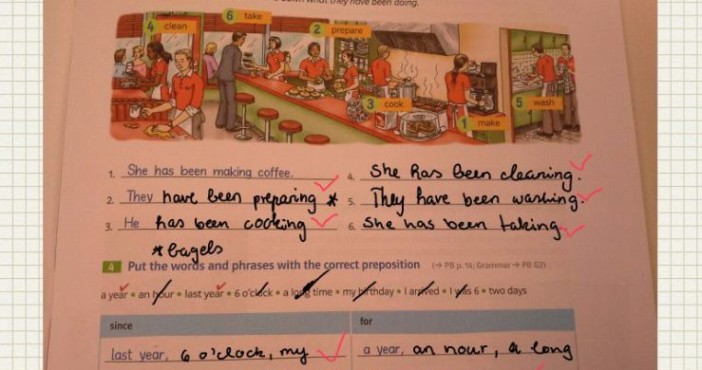 what they have been doing.
6 take
4 clean
2 prepare
3 cook
5 wash
1 make
1. She has been making coffee.
2. They have been preparing *
3. He has been cooking
* bagels
4. She has been cleaning.
5. They have been washing.
6. She has been taking
4 Put the words and phrases with the correct preposition (→ PB p. 14; Grammar → PB G2)
a year • an hour • last year • 6 o'clock • a long time • my birthday • I arrived • I was 6 • two days
since
for
last year, 6 o'clock, my
a year, an hour, a long